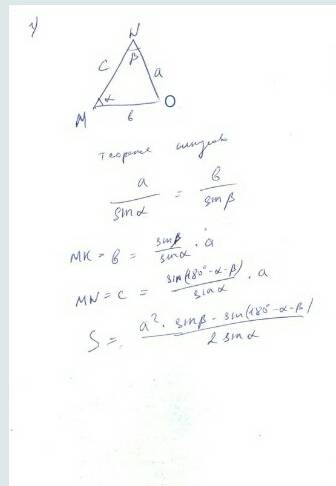 1)
N
β
c
a
α
M
b
O
теорема синусов
a / sinα = b / sinβ
MK = b = sinβ / sinα · a
MN = c = sin(180° - α - β) / sinα · a
S = a² · sinβ - sin(180° - α - β) / 2 sinα